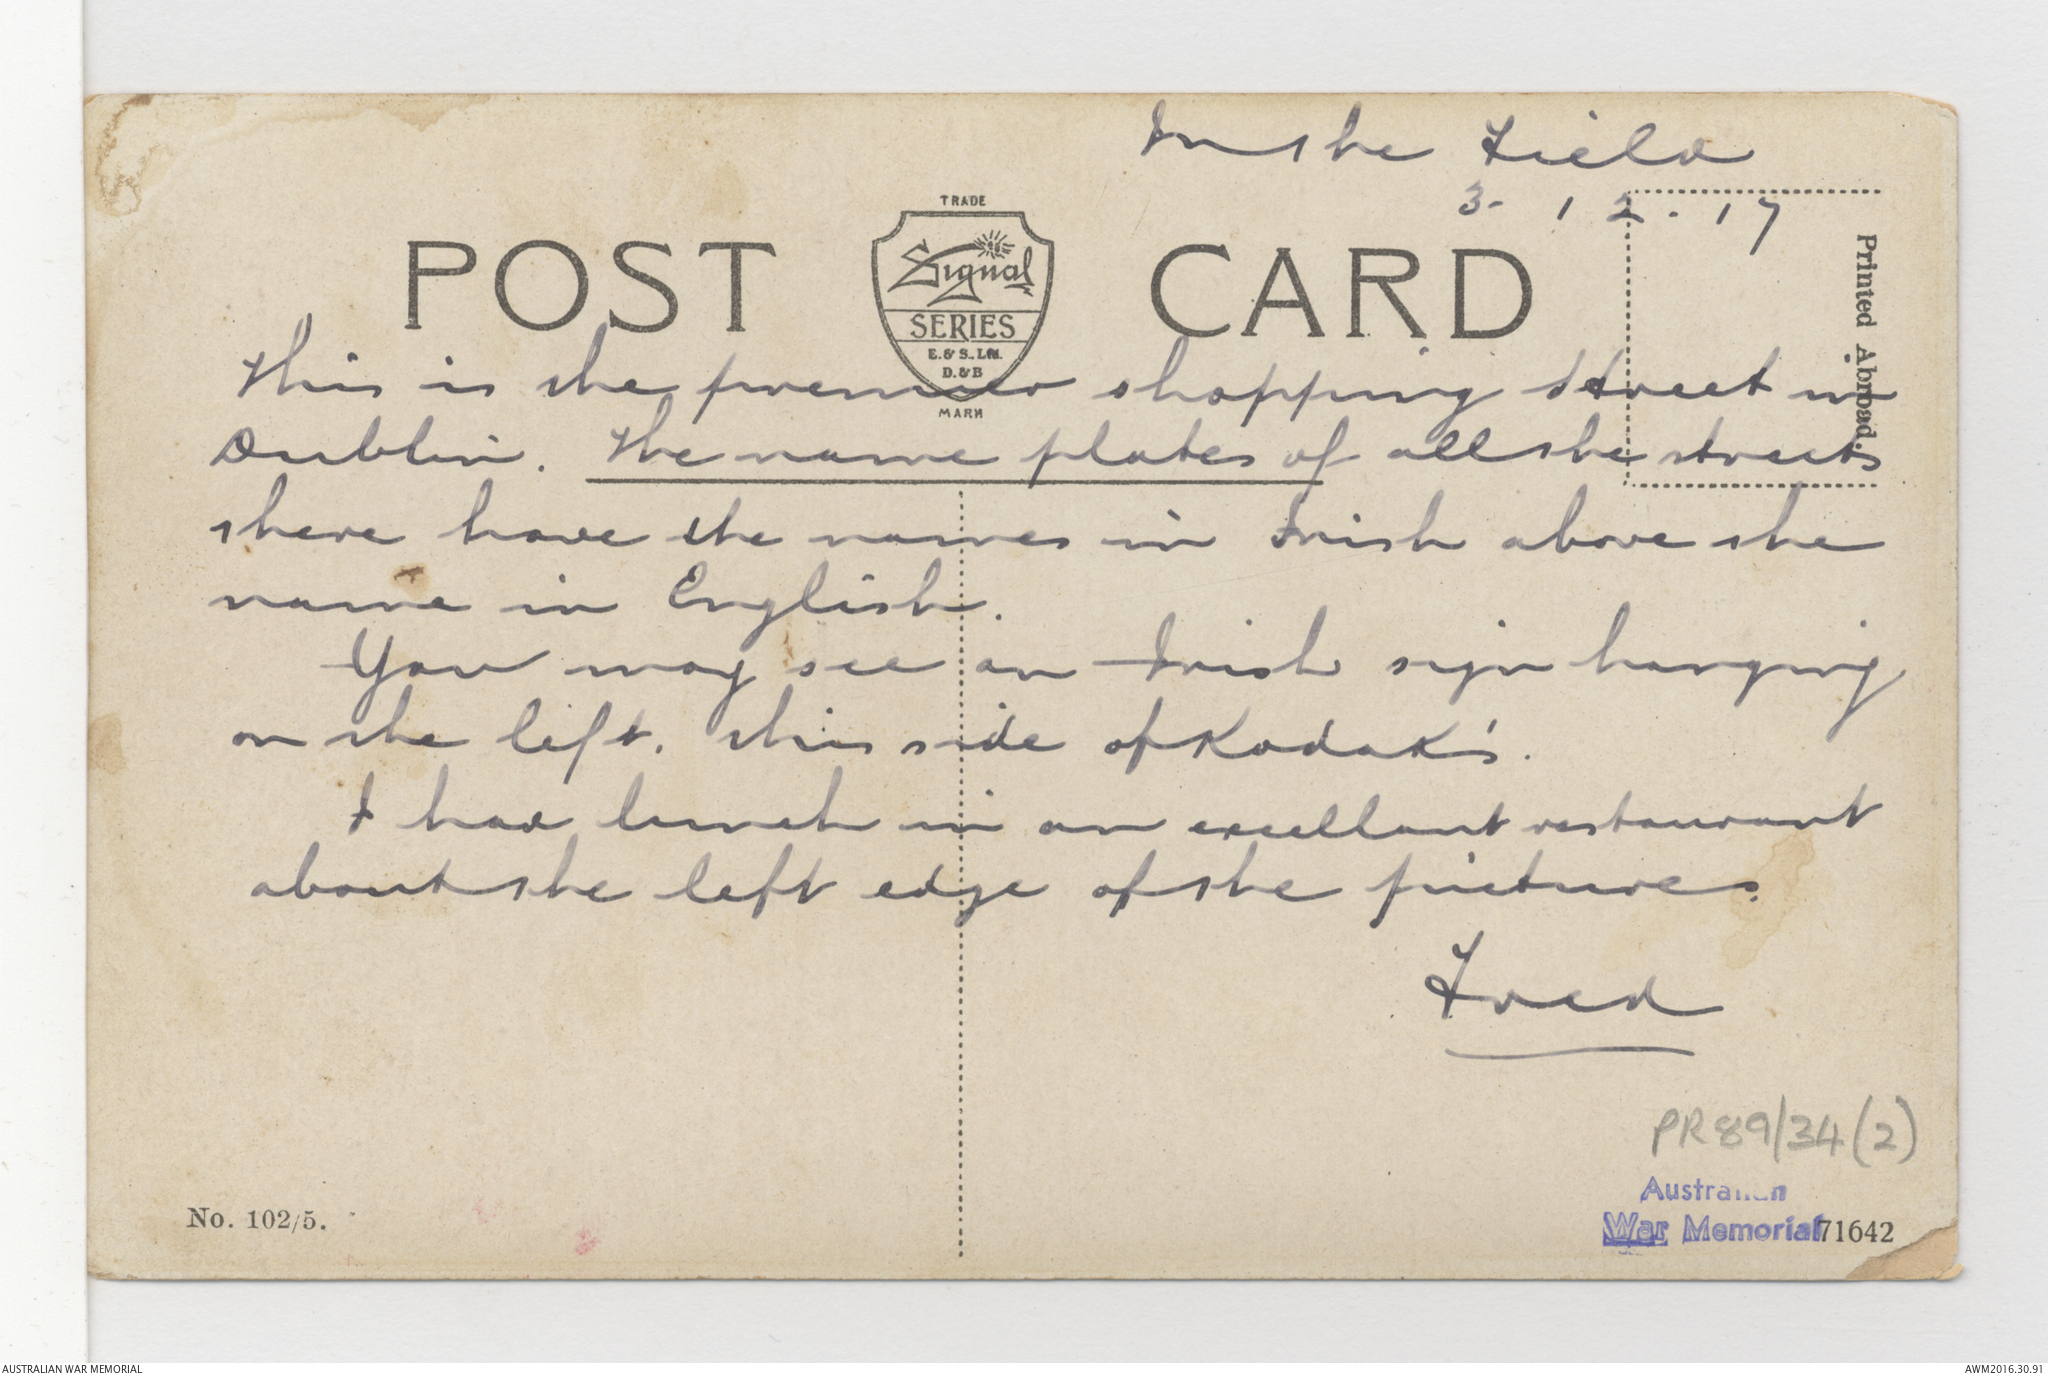 In the Field
3. 12. 17
TRADE
POST CARD
Signal
SERIES
E. & S., Ltd.
D. & B
MARK
Printed Abroad.
This is the premier shopping street in
Dublin. The name plates of all the streets
there have the names in Irish above the
name in English.
You may see an Irish sign hanging
on the left. this side of Kodak's.
I had lunch in an excellant restaurant
about the left edge of the picture.
Fred
PR89/34(2)
Australian
War Memorial
No. 102/5.
71642
AUSTRALIAN WAR MEMORIAL
AWM2016.30.91